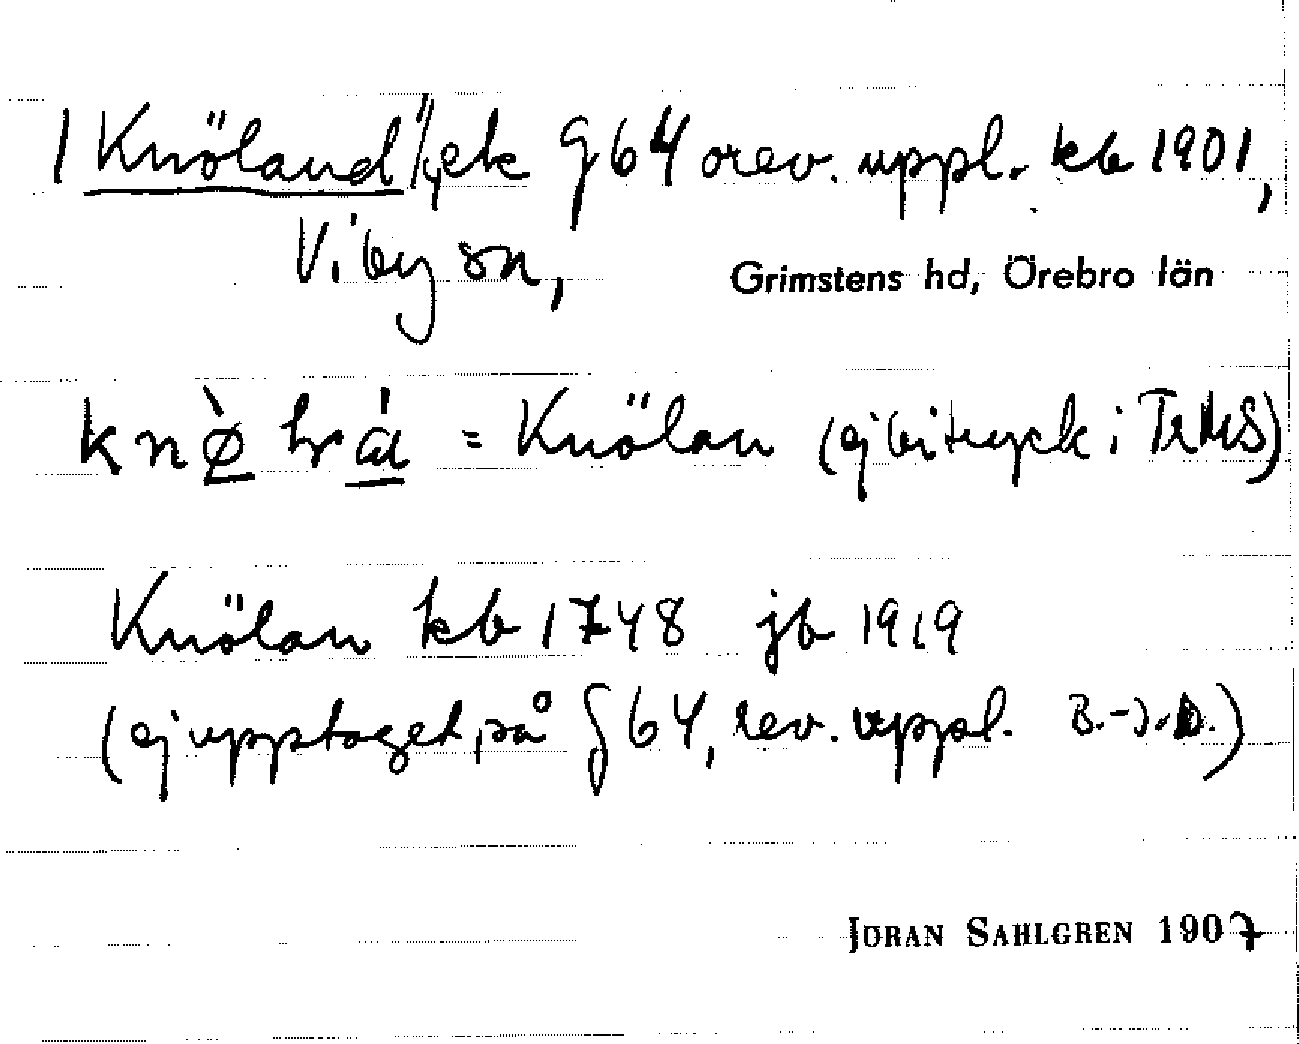 Knöland, ek § 64 orev. uppl. kb 1901,
Viby sn, Grimstens hd, Örebro län
= Knölan (ej bitryck i
Knölan kb 1748 jb 1919
(ej upptaget på § 64, rev. uppl.
JORAN SAHLGREN 1907